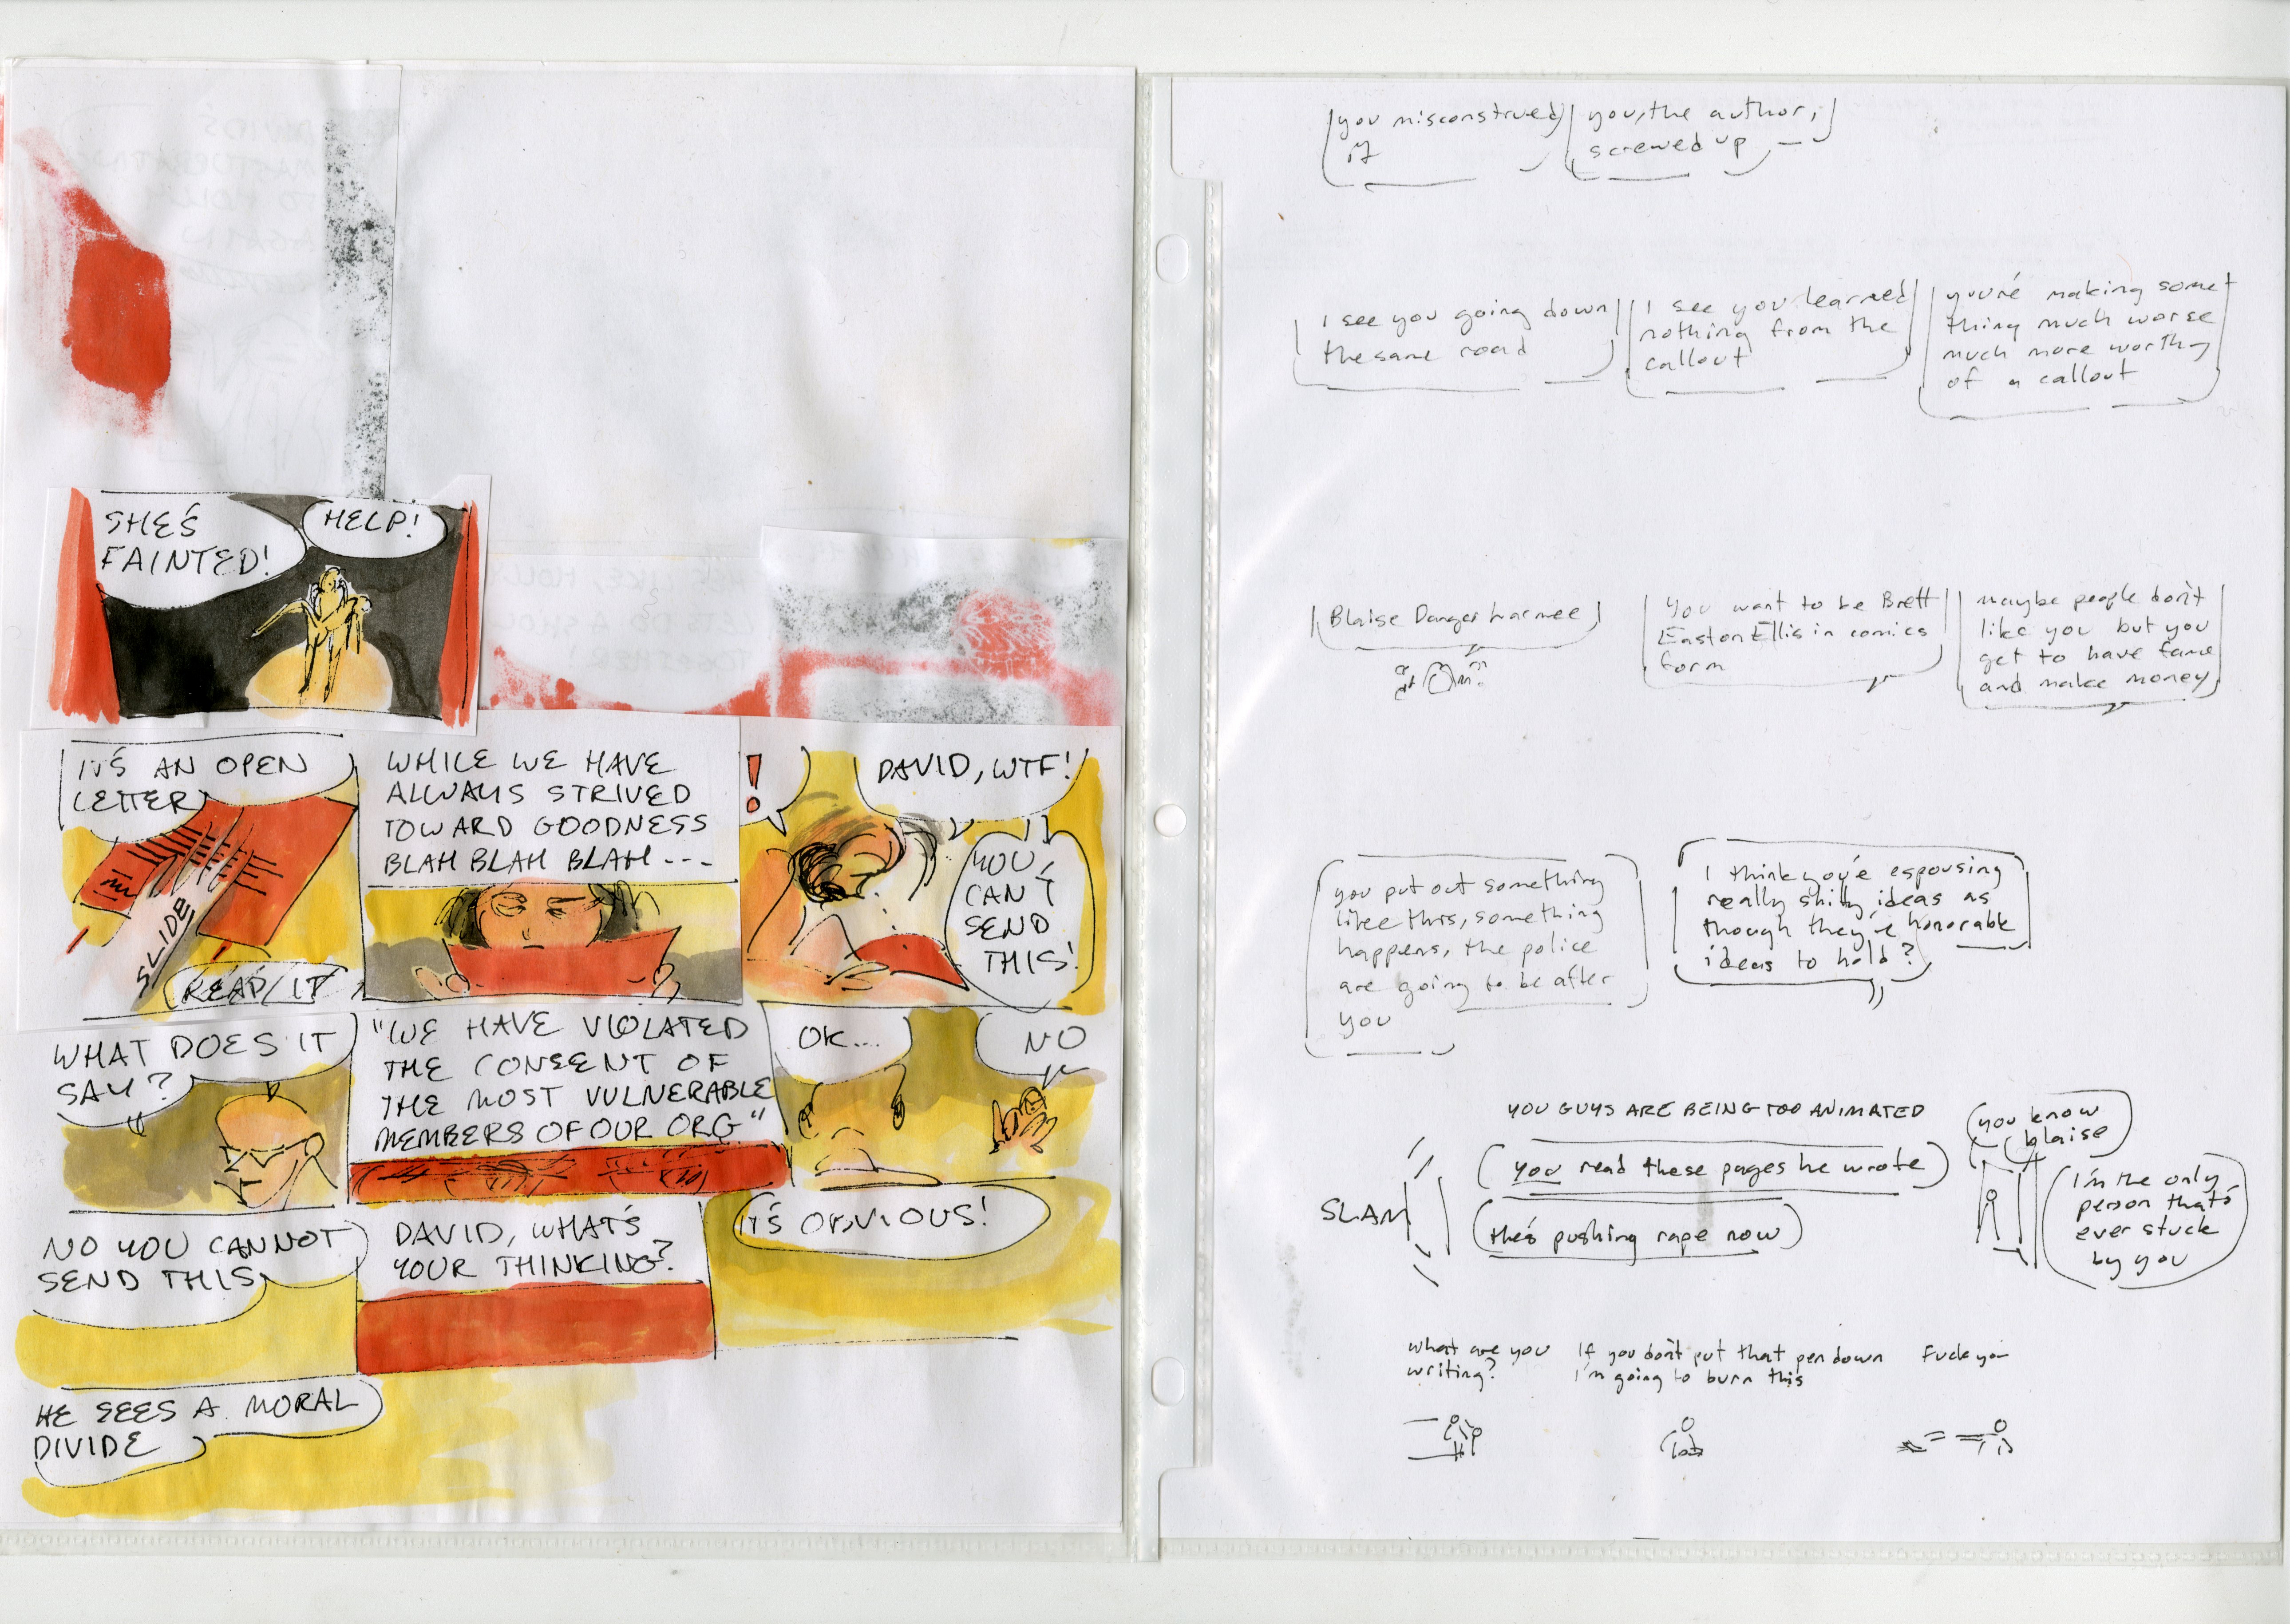 SHE'S
FAINTED!
HELP!
IT'S AN OPEN
LETTER
SLIDE
READ IT
WHILE WE HAVE
ALWAYS STRIVED
TOWARD GOODNESS
BLAH BLAH BLAH ---
!
DAVID, WTF!
YOU
CAN'T
SEND
THIS!
WHAT DOES IT
SAY?
"WE HAVE VIOLATED
THE CONSENT OF
THE MOST VULNERABLE
MEMBERS OF OUR ORG."
OK....
NO
NO YOU CANNOT
SEND THIS
DAVID, WHAT'S
YOUR THINKING?
IT'S OBVIOUS!
HE SEES A MORAL
DIVIDE
you misconstrued
it
you, the author,
screwed up
I see you going down
the same road
I see you learned
nothing from the
callout
you're making some
thing much worse
much more worthy
of a callout
Blaise Danger Larmee
You want to be Brett
Easton Ellis in comics
form
maybe people don't
like you but you
get to have fame
and make money
you put out something
like this, something
happens, the police
are going to be after
you
I think you're espousing
really shitty ideas as
though they're honorable
ideas to hold?
YOU GUYS ARE BEING TOO ANIMATED
SLAM
you read these pages he wrote
he's pushing rape now
you know
blaise
I'm the only
person that's
ever stuck
by you
what are you
writing?
If you don't put that pen down
I'm going to burn this
Fuck you